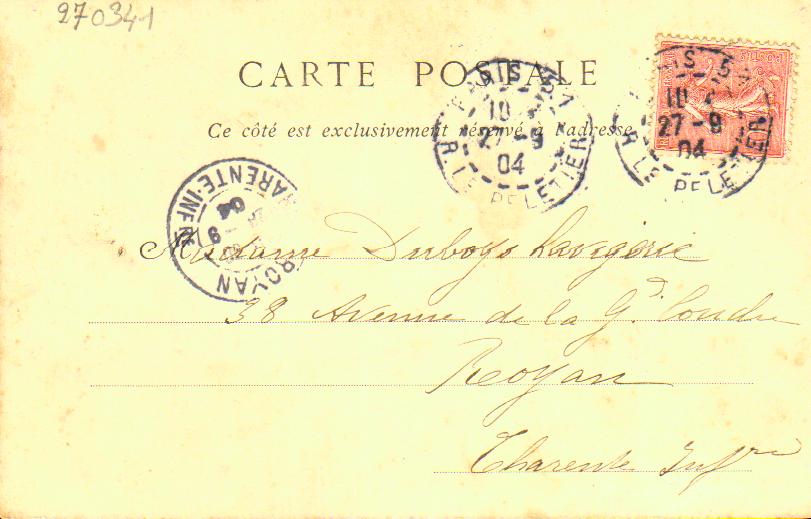 270341
CARTE POSTALE
Ce côté est exclusivement réservé à l'adresse
PARIS 51
10
27-9
04
R. LE PELETIER
PARIS 51
10
27-9
04
R. LE PELETIER
POSTES
ROYAN
CHARENTE-INFRE
-9
04
Madame Duboys Lavigerie
38 Avenue de la Gde Conche
Royan
Charente Infre